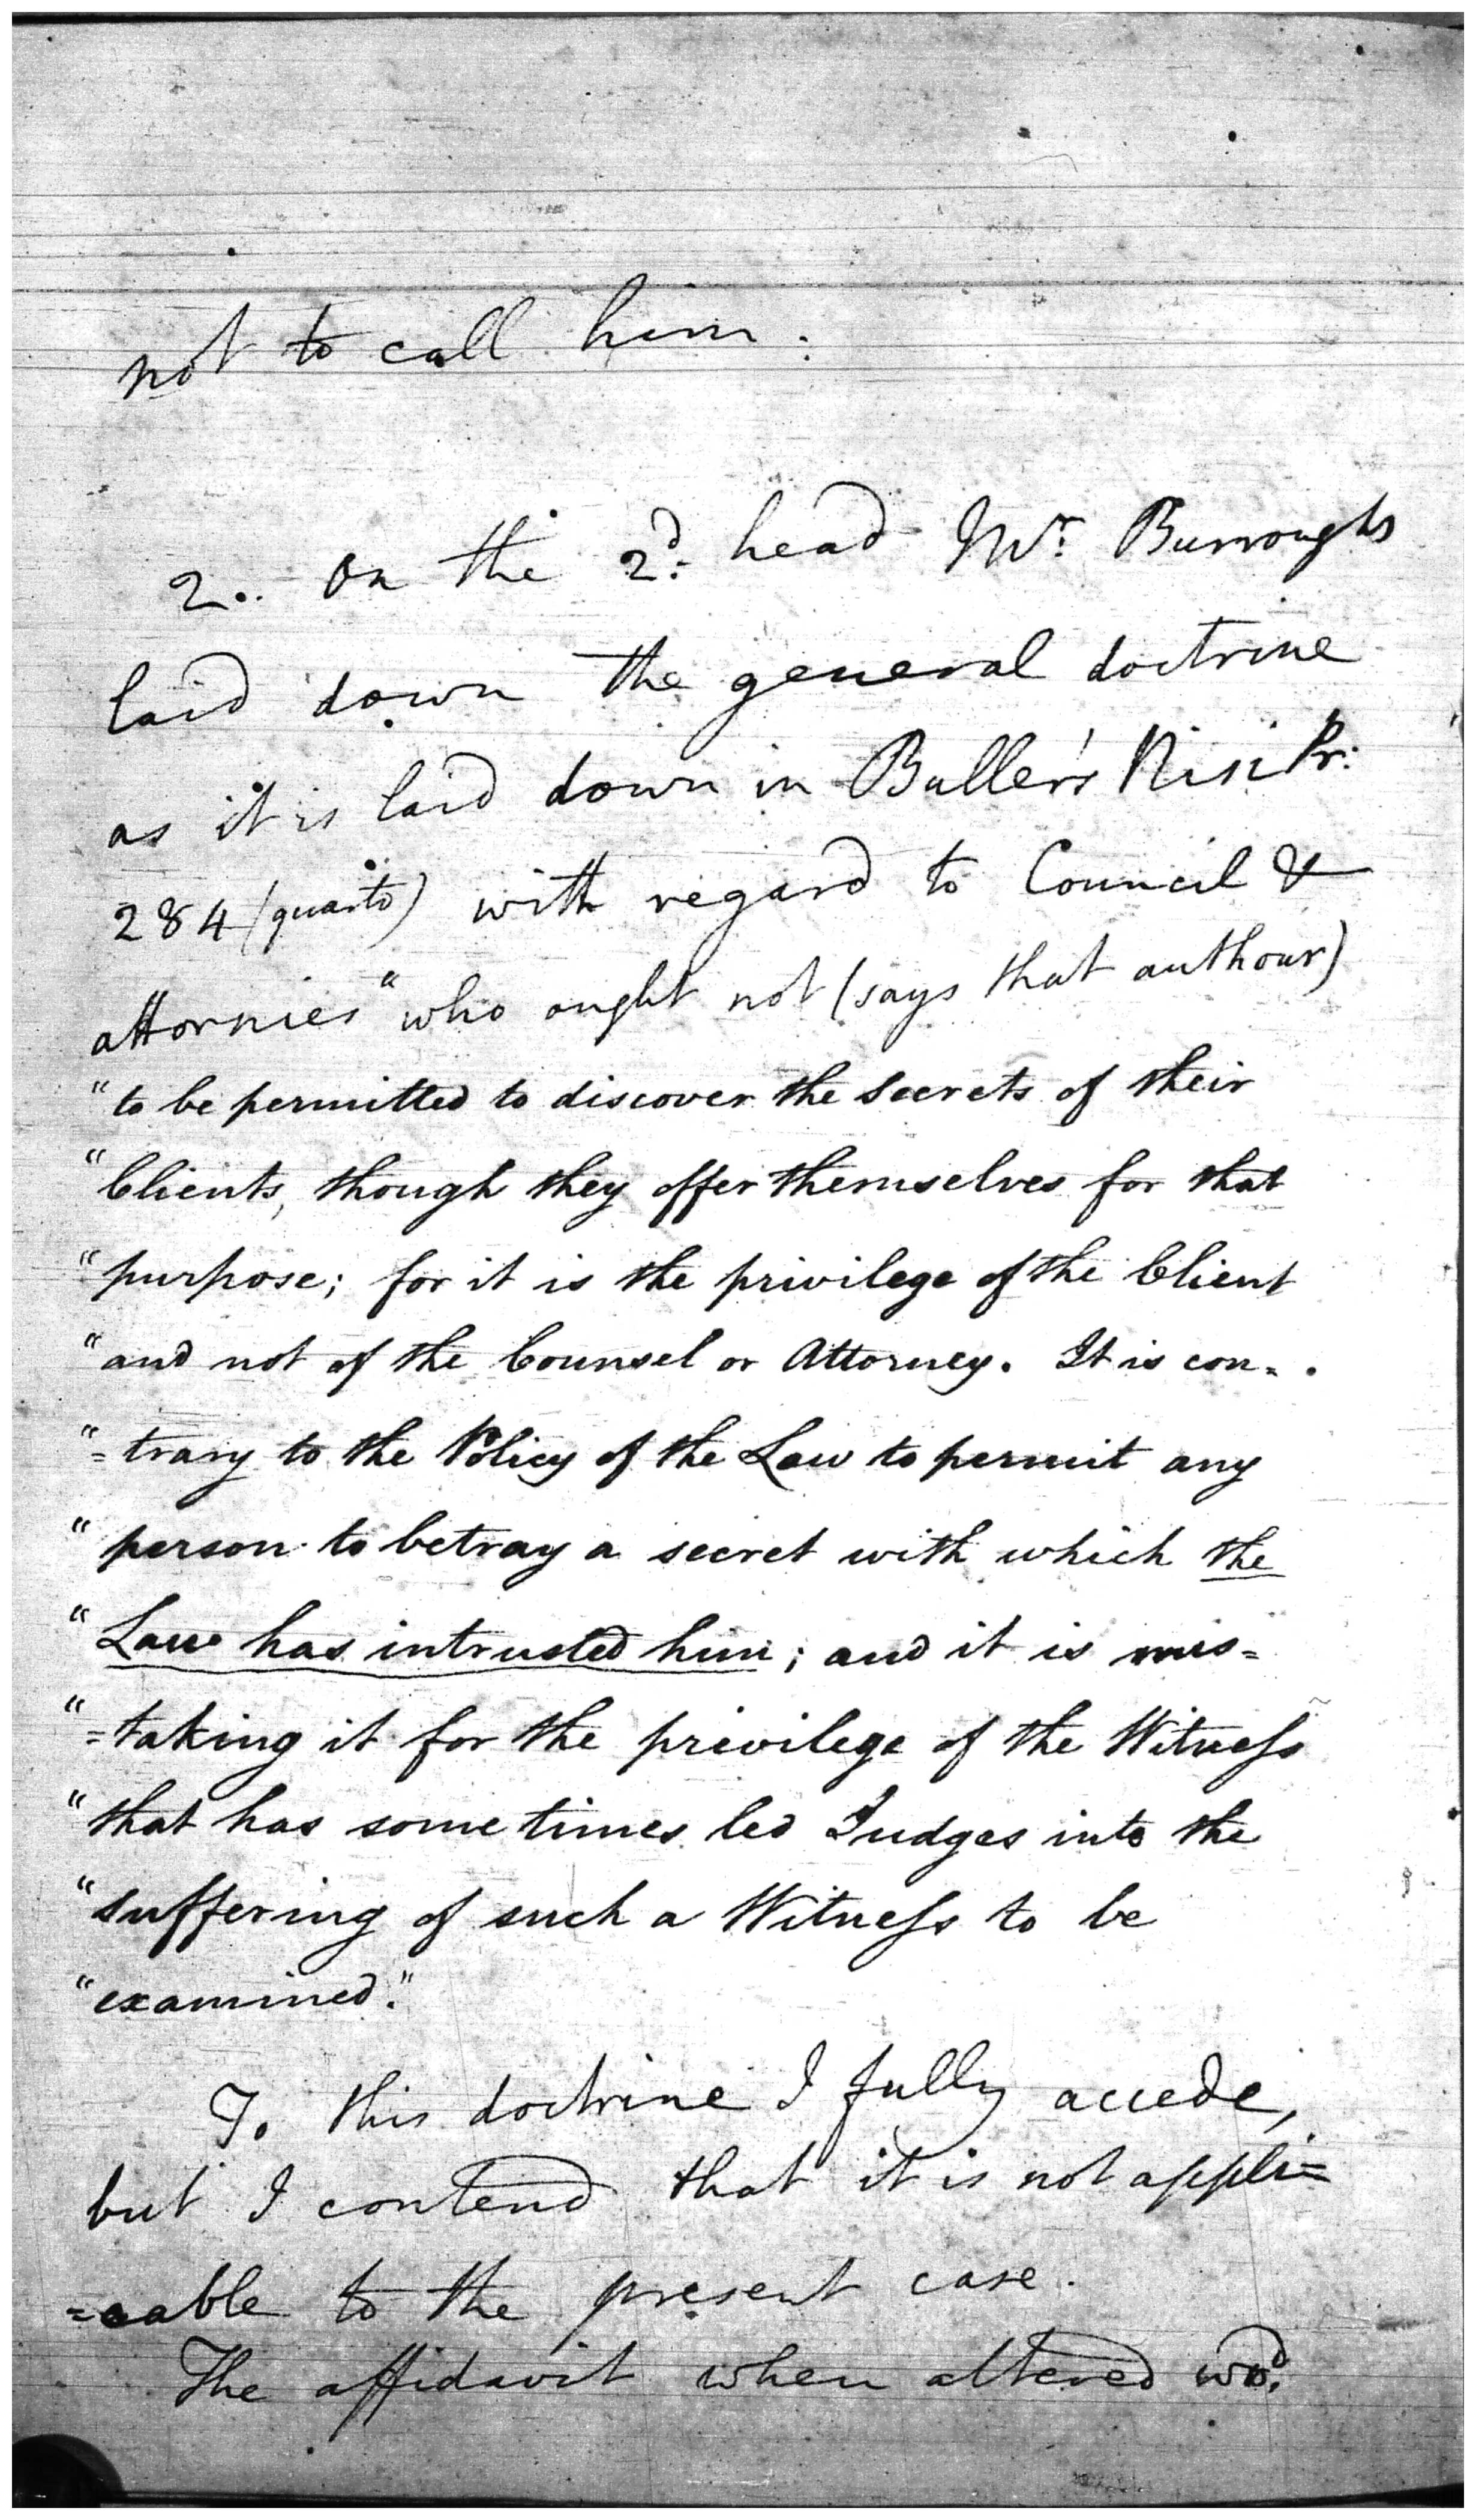 not to call him:
2.. On the 2d: head Mr: Burroughs
laid down the general doctrine
as it is laid down in Buller's Nisi Pr:
284 (quarto) with regard to Council &
attornies "who ought not (says that authour)
"to be permitted to discover the Secrets of their
"Clients, though they offer themselves for that
"purpose; for it is the privilege of the Client
"and not of the Counsel or Attorney. It is con=
"=trary to the Policy of the Law to permit any
"person to betray a secret with which the
"Law has intrusted him; and it is mis=
"=taking it for the privilege of the Witneſs
"that has some times led Judges into the
"suffering of such a Witneſs to be
"examined."
To this doctrine I fully accede,
but I contend that it is not appli=
=cable to the present case.
The affidavit when altered wod.